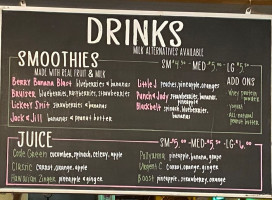 DRINKS
MILK ALTERNATIVES AVAILABLE
SMOOTHIES SM $4.50 - MED $5.00 - LG $5.50
MADE WITH REAL FRUIT & MILK
ADD ONS
Berry Banana Blast blueberries & bananas
Little J peaches, pineapple, oranges
Bruiser blueberries, raspberries, strawberries
Punch & Judy strawberries, bananas, pineapple
Lickety Split strawberries & bananas
Blackbelt spinach, blueberries, bananas
Jack & Jill bananas & peanut butter
whey protein powder
yogurt
All natural peanut butter
JUICE SM - $5.00 - MED - $5.50 - LG - $6.00
cucumber, spinach, celery, apple
pineapple, banana, grape
Classic carrot, orange, apple
carrot, orange, ginger
Hawaiian Zinger pineapple & ginger
Boost pineapple, strawberry, orange